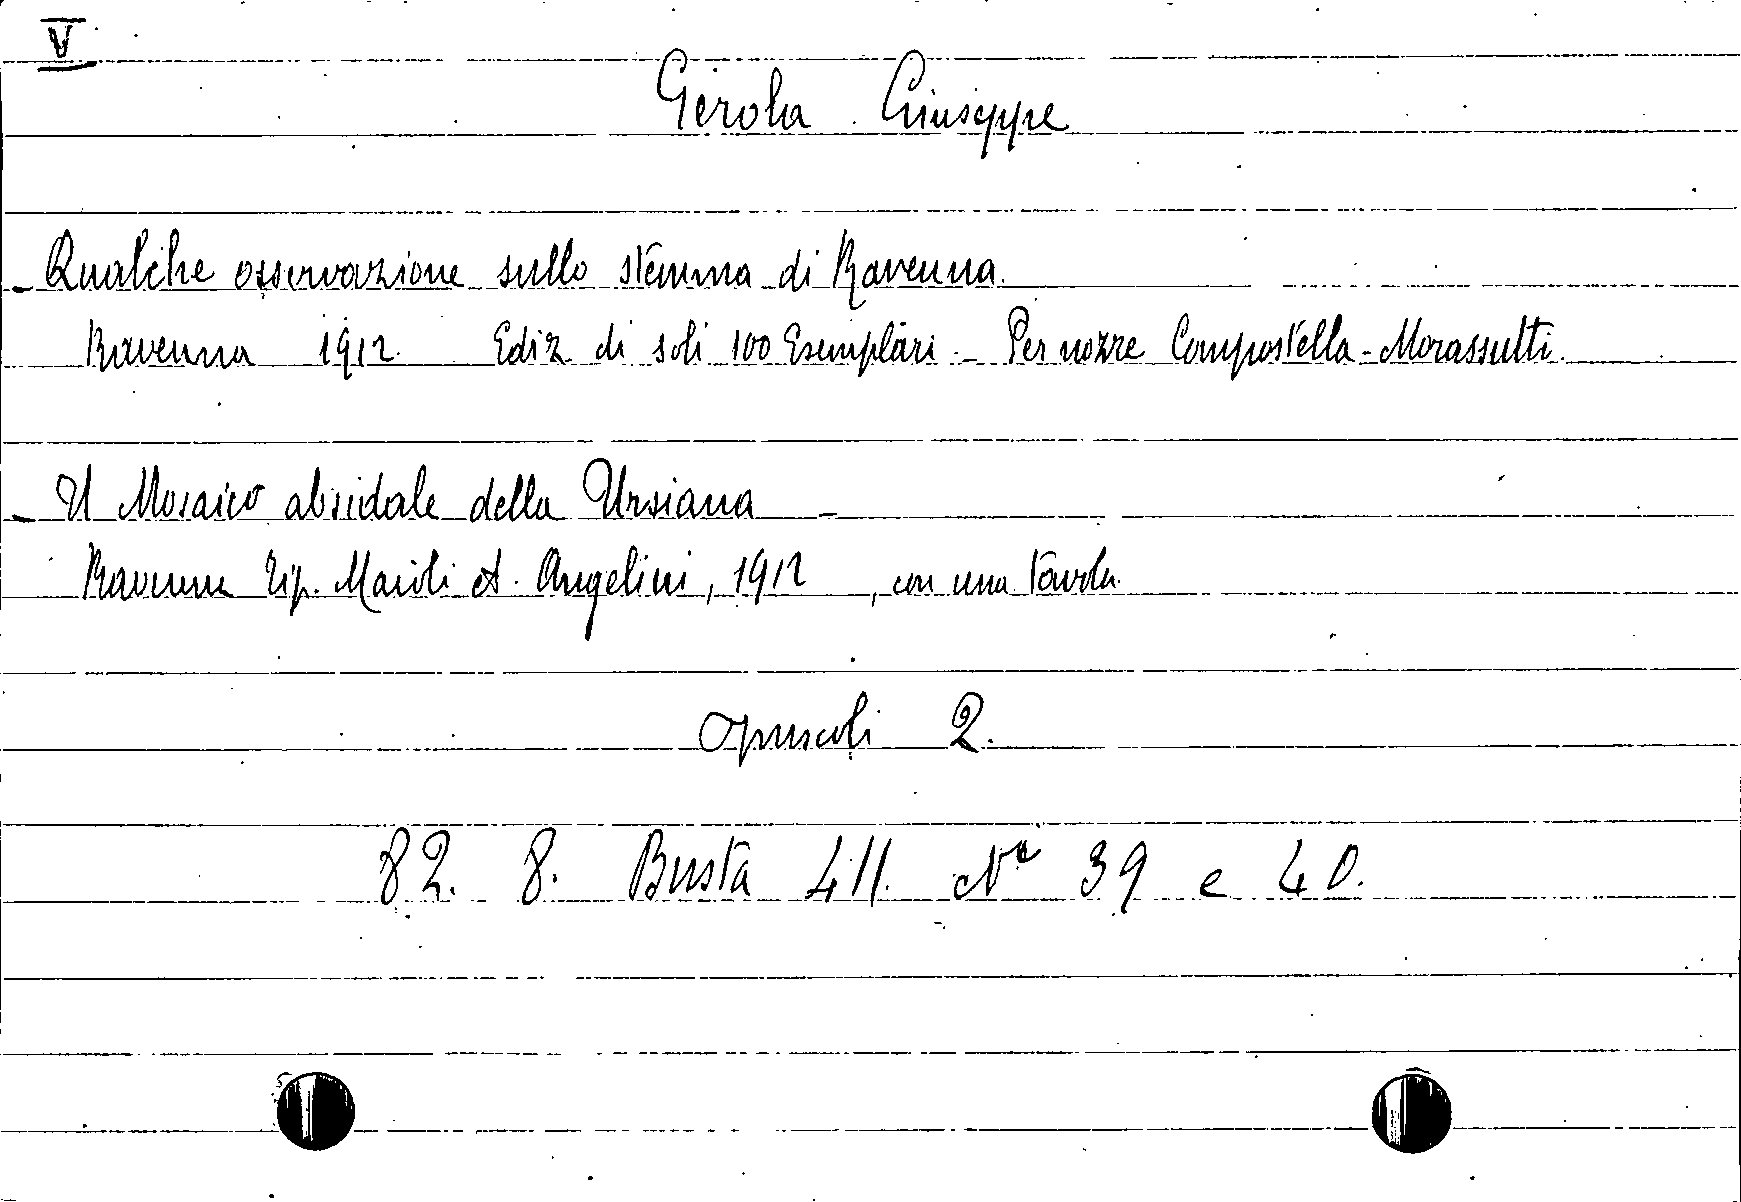 V
Gerola Giuseppe
- Qualche osservazione sullo stemma di Ravenna.
Ravenna 1912. Ediz. di soli 100 Esemplari. - Per nozze Compostella-Morassutti.
- Il Mosaico absidale della Ursiana -
Ravenna Tip. A. Angelini, 1912, con una tavola.
Opuscoli 2.
82. 8. Busta 411. Nº 39 e 40.